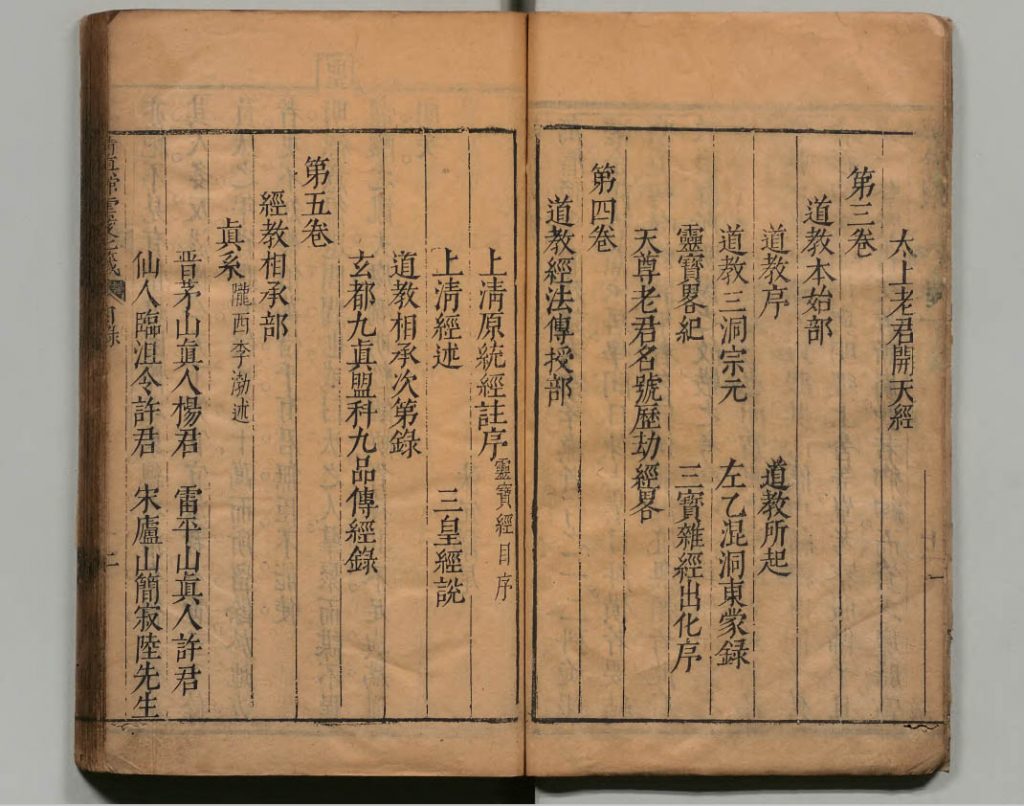 太上老君開天經
第三卷
道教本始部
道教序 道教所起
道教三洞宗元 左乙混洞東蒙録
靈寶畧紀 三寶雜經出化序
天尊老君名號歷劫經畧
第四卷
道教經法傳授部
上清原統經註序靈寶經目序
上清經述 三皇經説
道教相承次第錄
玄都九眞盟科九品傳經錄
第五卷
經教相承部
眞系隴西李渤述
晋茅山眞人楊君 雷平山眞人許君
仙人臨沮令許君 宋廬山簡寂陸先生
目錄 二
一